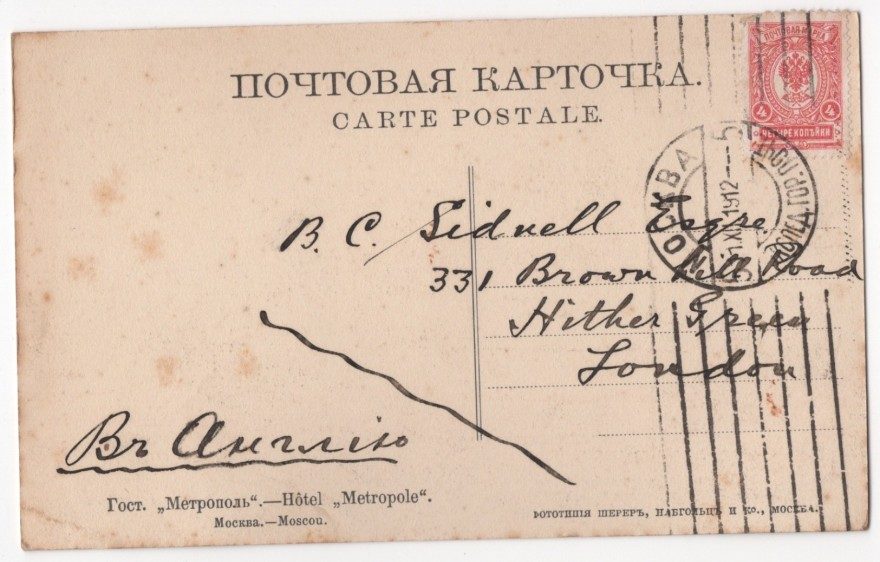 ПОЧТОВАЯ КАРТОЧКА.
CARTE POSTALE.
ПОЧТОВАЯ МАРКА
4 4
ЧЕТЫРЕ КОПѢЙКИ
МОСКВА
XII 1912
B. C. Sidnell Esqre
331 Brown Hill Road
Hither Green
London
Въ Англію
Гост. „Метрополь“.—Hôtel „Metropole“.
Москва.—Moscou.
ФОТОТИПІЯ ШЕРЕРЪ, НАБГОЛЬЦЪ И Ко., МОСКВА.